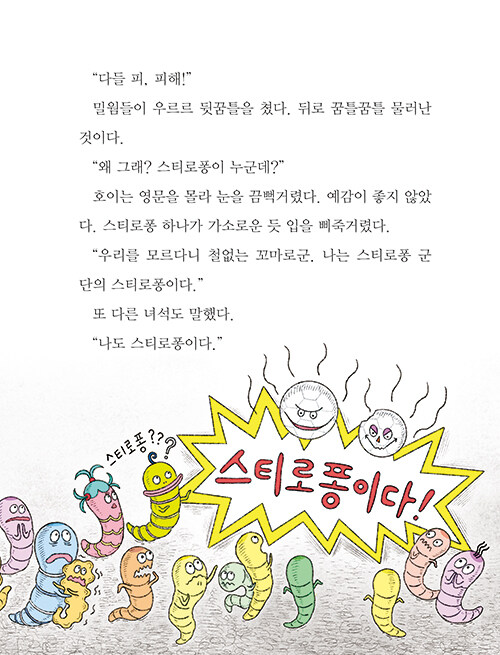 “다들 피. 피해!”
밀웜들이 우르르 뒷꿈틀을 쳤다. 뒤로 꿈틀꿈틀 물러난
것이다.
“왜 그래? 스티로퐁이 누군데?”
호이는 영문을 몰라 눈을 끔뻑거렸다. 예감이 좋지 않았
다. 스티로퐁 하나가 가소로운 듯 입을 삐죽거렸다.
“우리를 모르다니 철없는 꼬마로군. 나는 스티로퐁 군
단의 스티로퐁이다.”
또 다른 녀석도 말했다.
“나도 스티로퐁이다.”
스티로퐁???
스티로퐁이다!